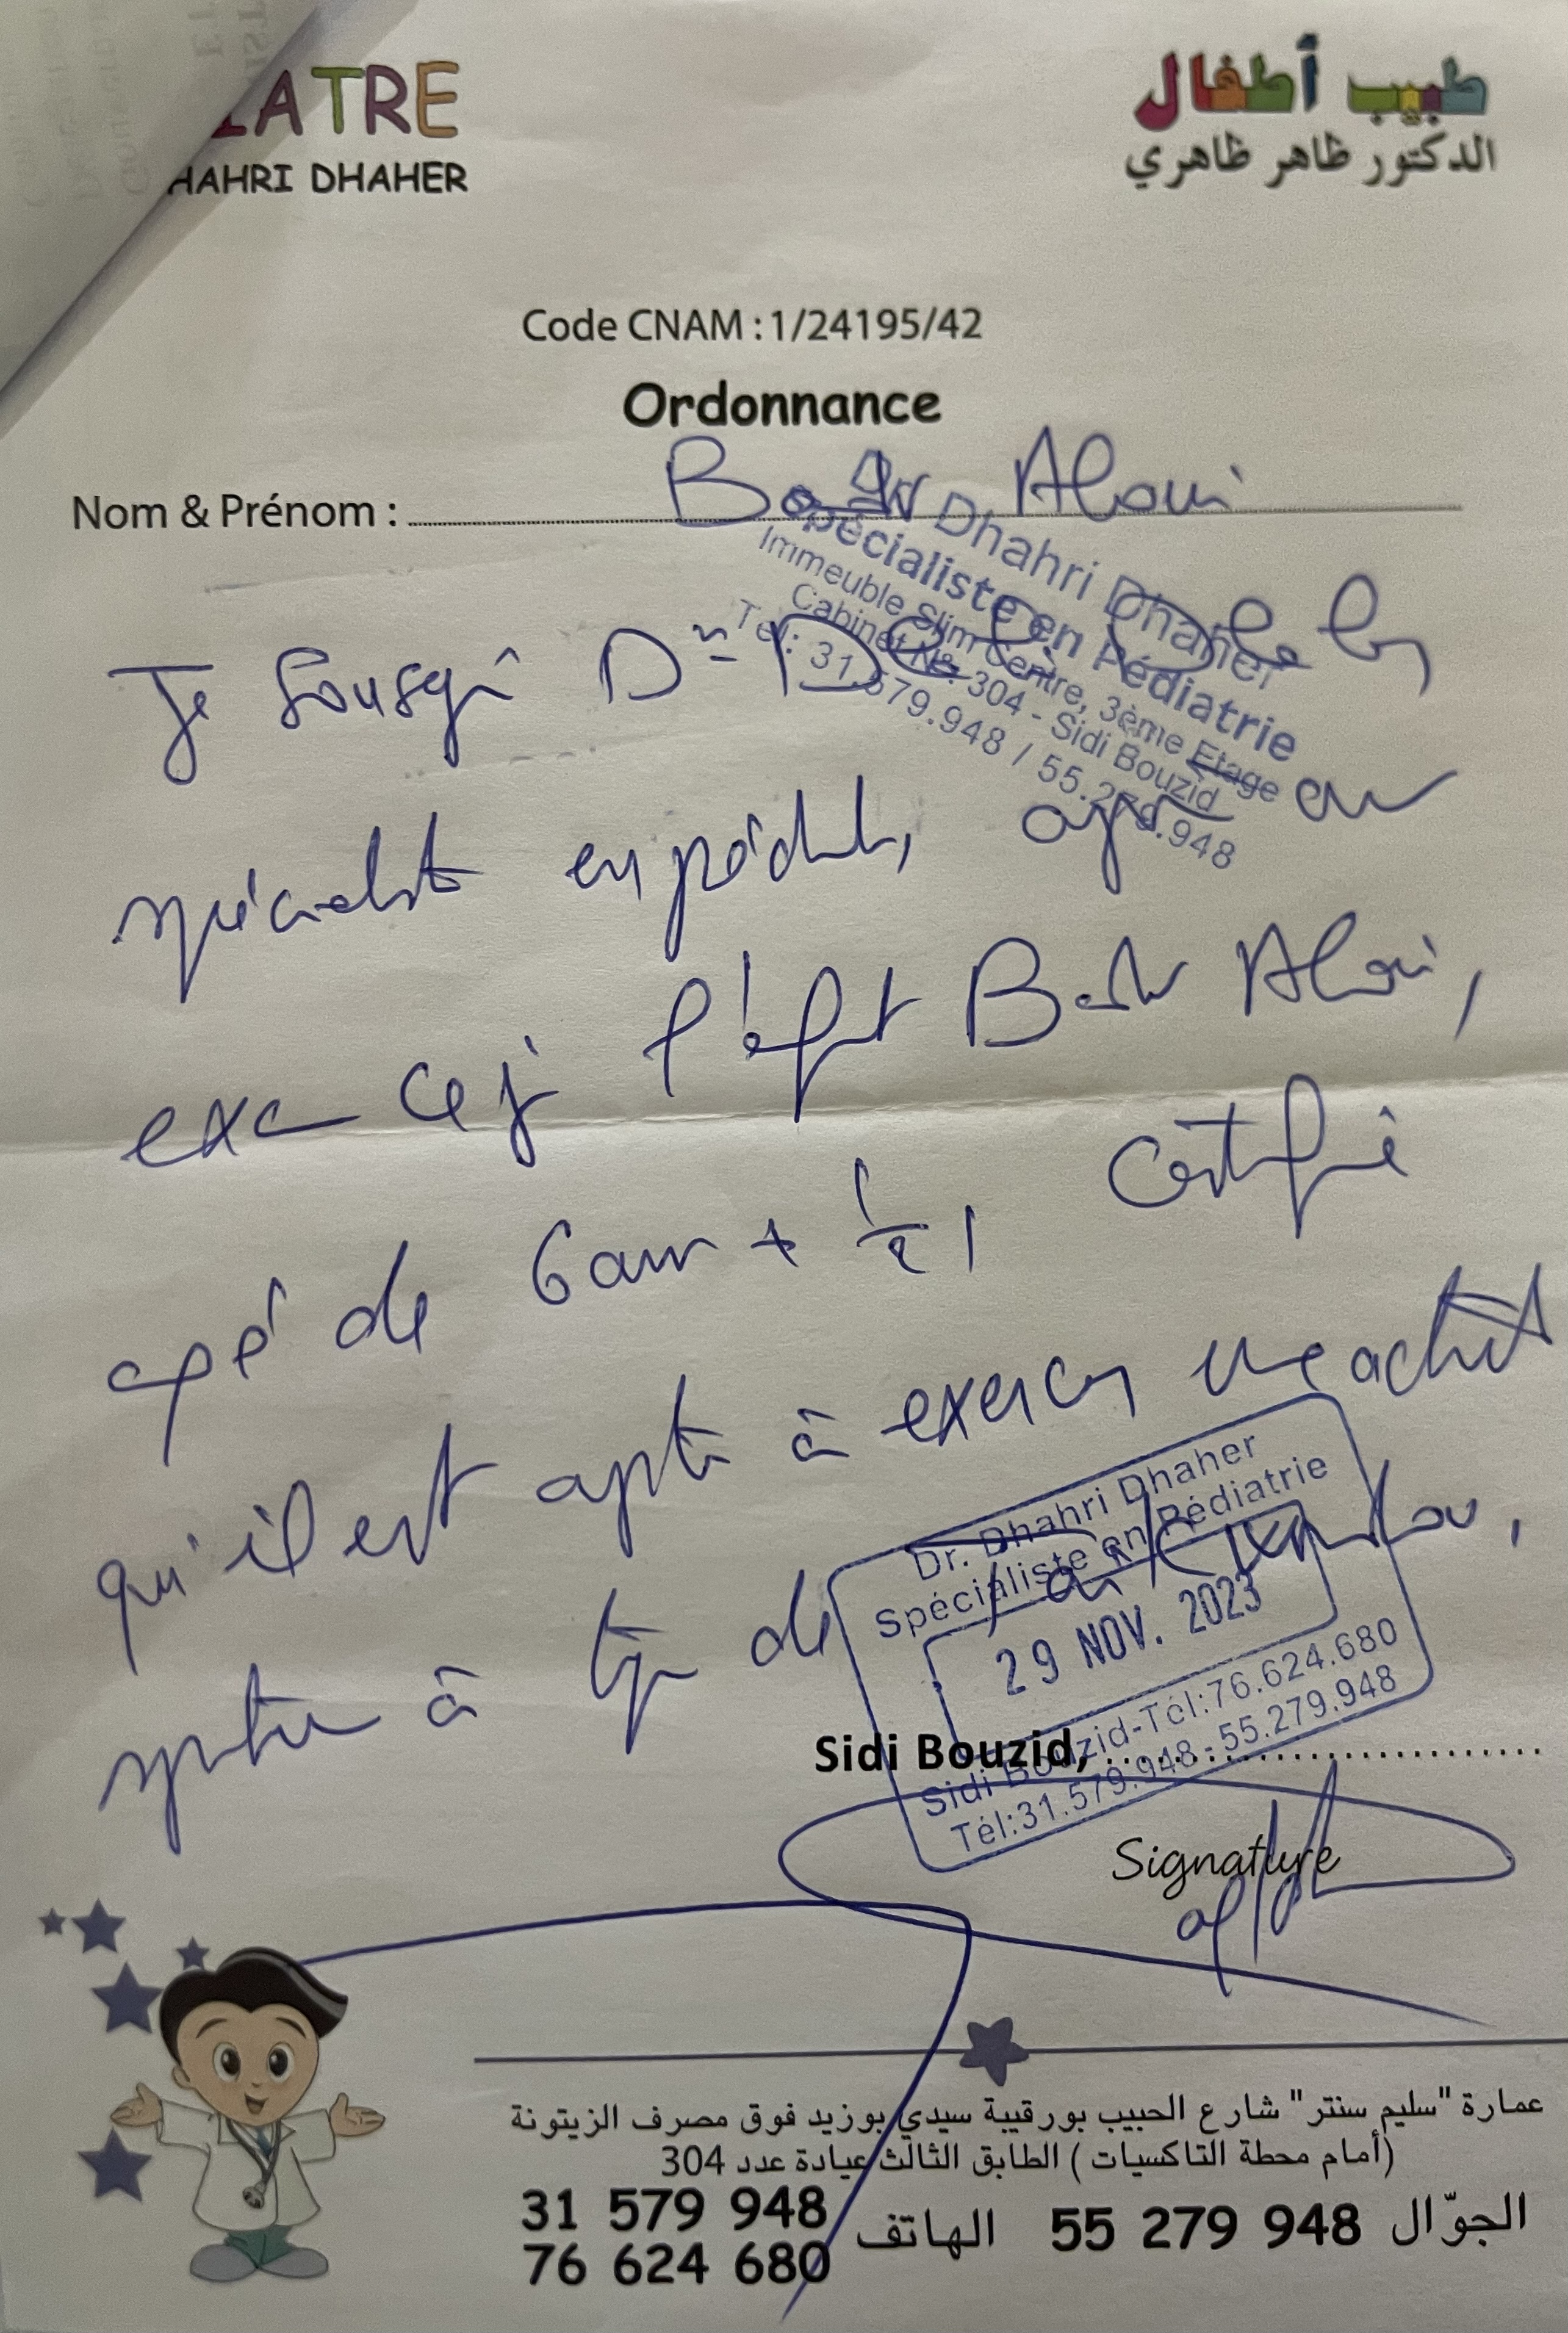 ATRE
طبيب أطفال
HAHRI DHAHER
الدكتور ظاهر ظاهري
Code CNAM : 1/24195/42
Ordonnance
Nom & Prénom : Aloui
Dhahri Dhaher
Spécialiste en Pédiatrie
Immeuble Slim Centre, 3ème Etage
Cabinet N°: 304 - Sidi Bouzid
Tél: 31.579.948 / 55.279.948
Je Sousgné Dr
spécialiste en pédiatrie, ayant
exa ce j l'enfant Aloui,
agé de 6 ans + 1/2, certifie
qu'il est apte à exercer une activité
sportive à type de
Dr. Dhahri Dhaher
Spécialiste en Pédiatrie
29 NOV. 2023
Sidi Bouzid-Tél:76.624.680
Tél:31.579.948-55.279.948
Sidi Bouzid, ..............................
Signature
عمارة "سليم سنتر" شارع الحبيب بورقيبة سيدي بوزيد فوق مصرف الزيتونة
(أمام محطة التاكسيات) الطابق الثالث عيادة عدد 304
الجوّال 55 279 948 الهاتف 31 579 948
76 624 680